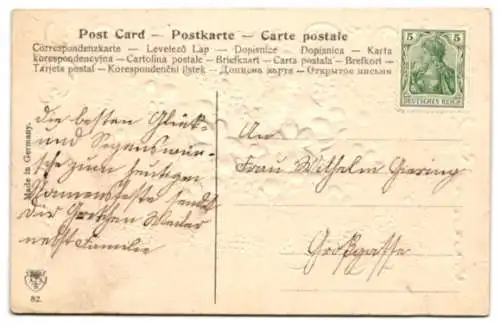 Post Card – Postkarte – Carte postale
Correspondenzkarte – Levelező Lap – Dopisnice – Dopisnica – Karta
korespondencyjna – Cartolina postale – Briefkaart – Carta postala – Brefkort –
Tarjeta postal – Korespondenční lístek – Дописна карта – Открытое письмо
5 5
DEUTSCHES REICH
Made in Germany.
Die besten Glück-
und Segenswün-
sche zum heutigen
Namensfeste sendt
Dir Gretchen Weiler
nebst Familie
An
Frau Wilhelm Giering
Großgasse
82.